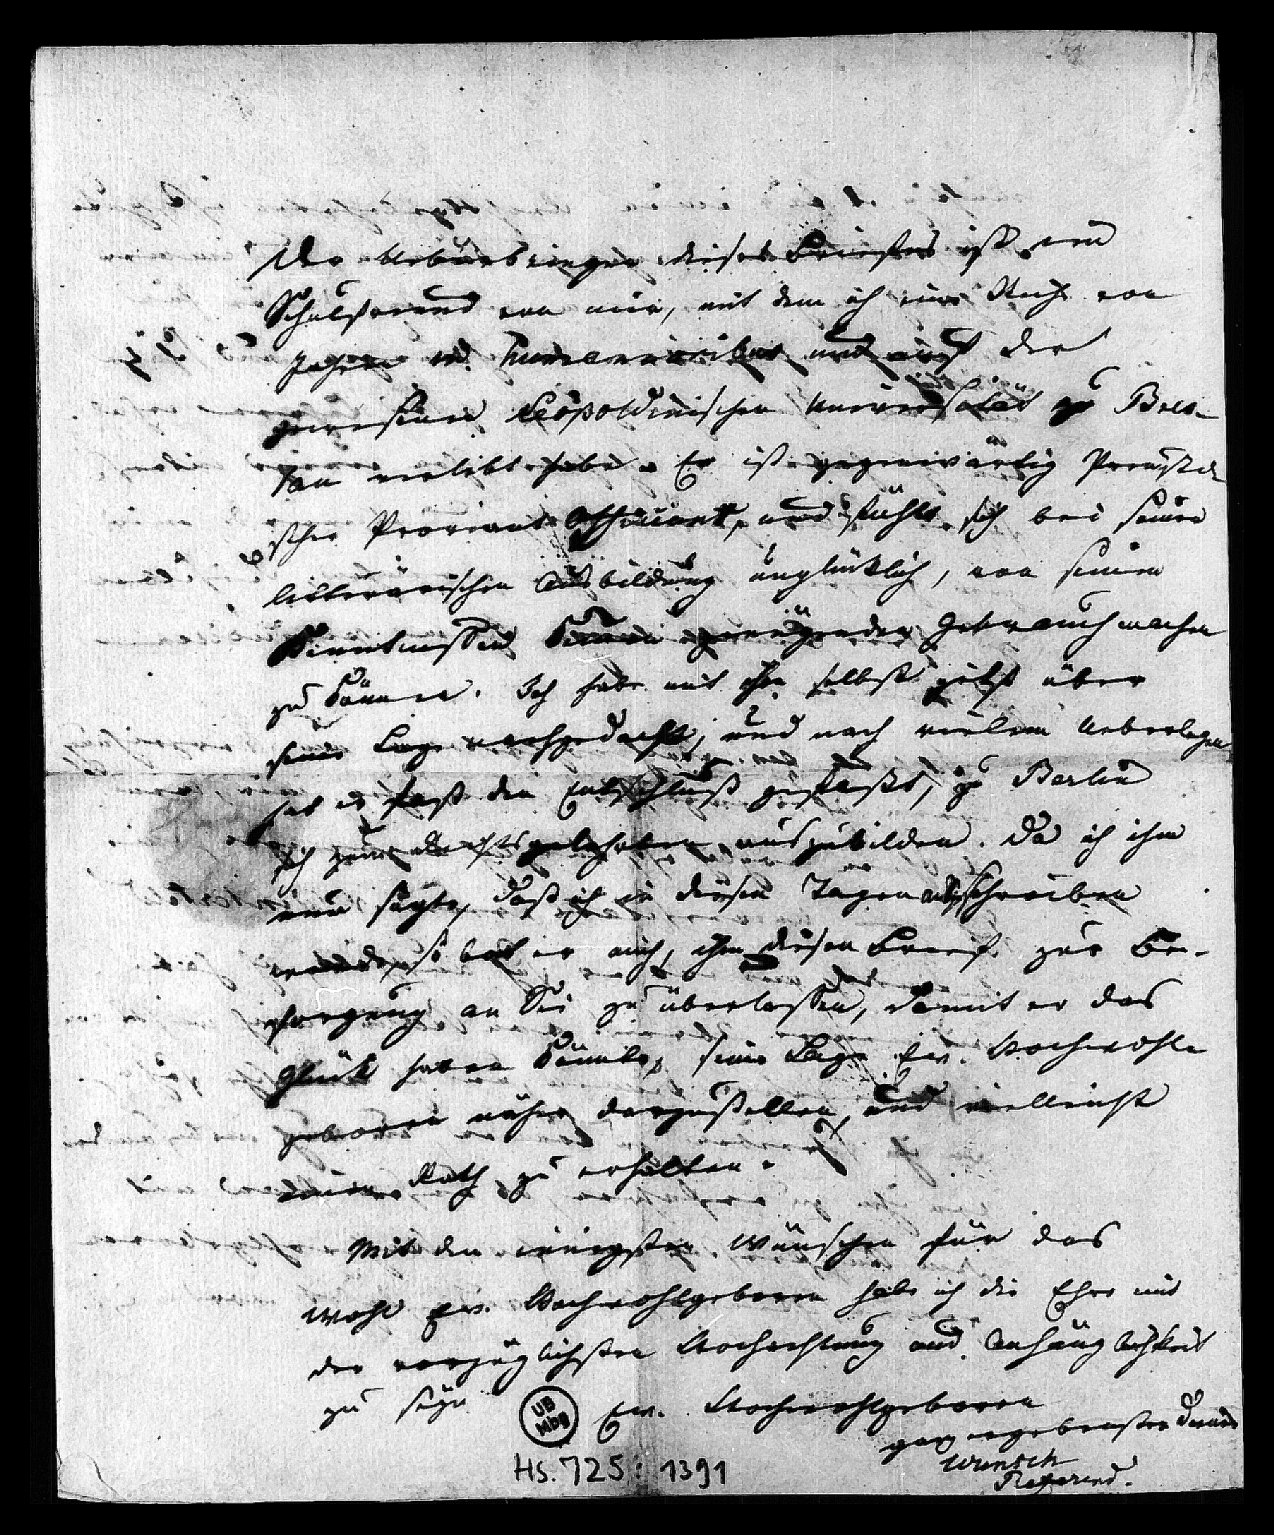 Der Ueberbringer dieses Briefes ist ein
Schulfreund von mir, mit dem ich eine Reihe von
Jahren in humanioribus und auf der
Leopoldinischen Universität zu Bres-
lau verlebt habe. Er ist gegenwärtig Preußi-
scher Proviant Officiant, und fühlt sich bei seiner
litterärischen Ausbildung unglücklich, von seinen
Kenntnissen keinen genügenden Gebrauch machen
zu können. Ich habe mit ihm selbst über
seine Lage nachgedacht, und nach vielem Ueberlegen
hat er fast den Entschluß gefaßt, zu Berlin
sich zum Rechtsgelehrten auszubilden. Da ich ihm
nun sagte, daß ich in diesen Tagen schreiben
würde, so bat er mich, ihm diesen Brief zur Be-
sorgung an Sie zu überlassen, damit er das
Glück haben könnte, seine Lage Ew. Hochwohl-
geboren näher darzustellen, und vielleicht
einen Rath zu erhalten.
Mit den innigsten Wünschen für das
Wohl Ew. Hochwohlgeboren habe ich die Ehre mit
der vorzüglichsten Hochachtung und Anhänglichkeit
zu seyn
Ew. Hochwohlgeboren
ganz ergebenster Diener
Wunsch
Referend.
UB
Mbg
Hs. 725: 1391